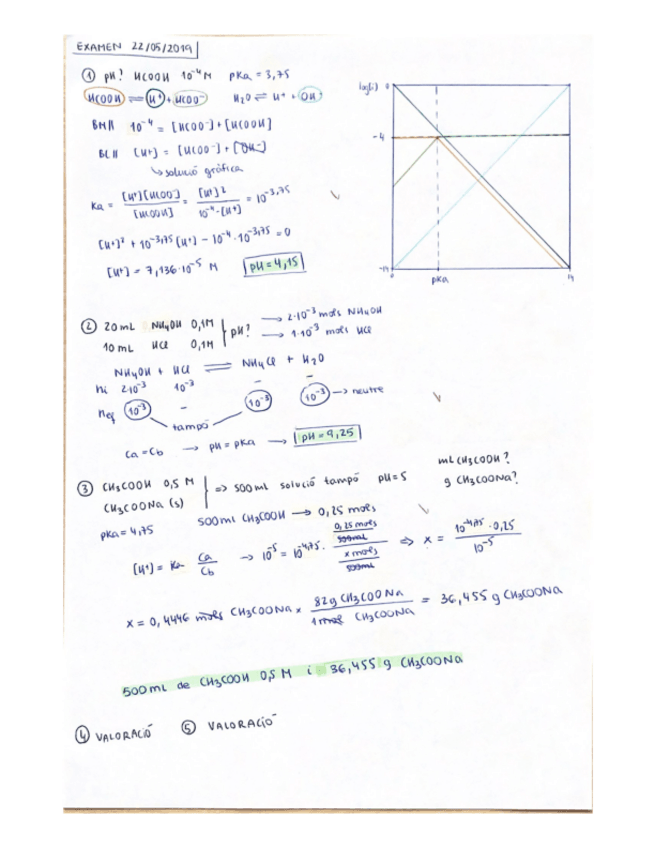 EXAMEN 22/05/2019
① pH? HCOOH 10⁻⁴M pKa = 3,75
HCOOH ⇌ H⁺ + HCOO⁻ H₂O ⇌ H⁺ + OH⁻
BM// 10⁻⁴ = [HCOO⁻] + [HCOOH]
BC// [H⁺] = [HCOO⁻] + [OH⁻]
↳ solució gràfica
Ka = [H⁺][HCOO⁻] / [HCOOH] = [H⁺]² / 10⁻⁴-[H⁺] = 10⁻³,⁷⁵
[H⁺]² + 10⁻³,⁷⁵[H⁺] − 10⁻⁴·10⁻³,⁷⁵ = 0
[H⁺] = 7,136·10⁻⁵ M pH = 4,15
log(i) 0
-4
-14
pKa
14
② 20 mL NH₄OH 0,1M
10 mL HCl 0,1M
pH?
→ 2·10⁻³ mols NH₄OH
→ 1·10⁻³ mols HCl
NH₄OH + HCl ⇌ NH₄Cl + H₂O
ni 2·10⁻³ 10⁻³ − −
neq 10⁻³ − 10⁻³ 10⁻³ → neutre
tampó
Ca = Cb → pH = pKa → pH = 9,25
③ CH₃COOH 0,5 M
CH₃COONa (s)
⇒ 500 mL solució tampó pH = 5
mL CH₃COOH?
g CH₃COONa?
pKa = 4,75
500 mL CH₃COOH → 0,25 mols
[H⁺] = Ka Ca/Cb → 10⁻⁵ = 10⁻⁴,⁷⁵ · (0,25 mols / 500mL) / (x mols / 500mL) ⇒ x = 10⁻⁴,⁷⁵ · 0,25 / 10⁻⁵
x = 0,4446 mols CH₃COONa × 82g CH₃COONa / 1 mol CH₃COONa = 36,455 g CH₃COONa
500 mL de CH₃COOH 0,5 M i 36,455 g CH₃COONa
④ VALORACIÓ ⑤ VALORACIÓ